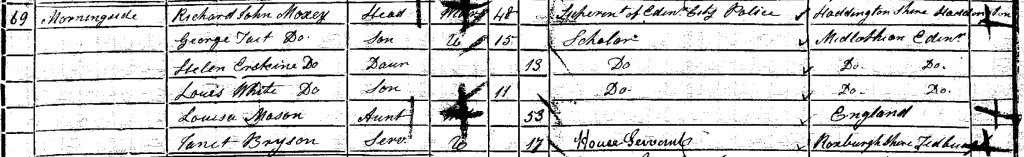 69 Morningside Richard John Moxey Head 48 Superent of Edinr City Police Haddington Shire Haddington
George Tait Do. Son U 15 Scholar Midlothian Edinr
Helen Erskine Do Daur 13 Do Do. Do.
Louis White Do Son 11 Do. Do Do.
Louisa Mason Aunt 53 England
Janet Bryson Serv. U 17 House Servant Roxburgh Shire